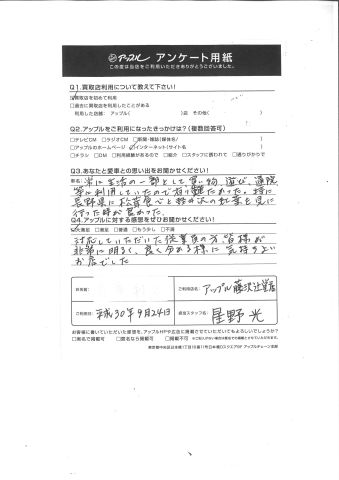 アップル アンケート用紙
この度は当店をご利用いただきありがとうございました。
Q1.買取店利用について教えて下さい!
買取店を初めて利用
□過去に買取店を利用したことがある
利用した店舗: アップル( )店 その他( )
Q2.アップルをご利用になったきっかけは?(複数回答可)
□テレビCM □ラジオCM □新聞・雑誌(媒体名/ )
□アップルのホームページ インターネット(サイト名 )
□チラシ □DM □利用経験があるので □紹介 □スタッフに誘われて □通りがかりで
Q3.あなたと愛車との思い出をお聞かせください!
車名: 常に生活の一部として買い物、遊び、通院
等に利用していたので有り難たかった。特に
長野県に松茸食べと 紅葉を見に
行った時が良かった。
Q4.アップルに対する感想をぜひお聞かせください!
大満足 □満足 □普通 □もう少し □不満
対応していただいた従業員の方、皆様が
非常に明るく、良く分る様に 気持ちよい
お店でした
お名前:
ご利用店名: アップル藤沢辻堂店
ご利用日: 平成30年9月24日
担当スタッフ名: 星野 光
お客様に書いていただいた感想を、アップルHPや広告に掲載させていただいてもよろしいでしょうか?
□実名で掲載可 □匿名なら掲載可 □掲載不可